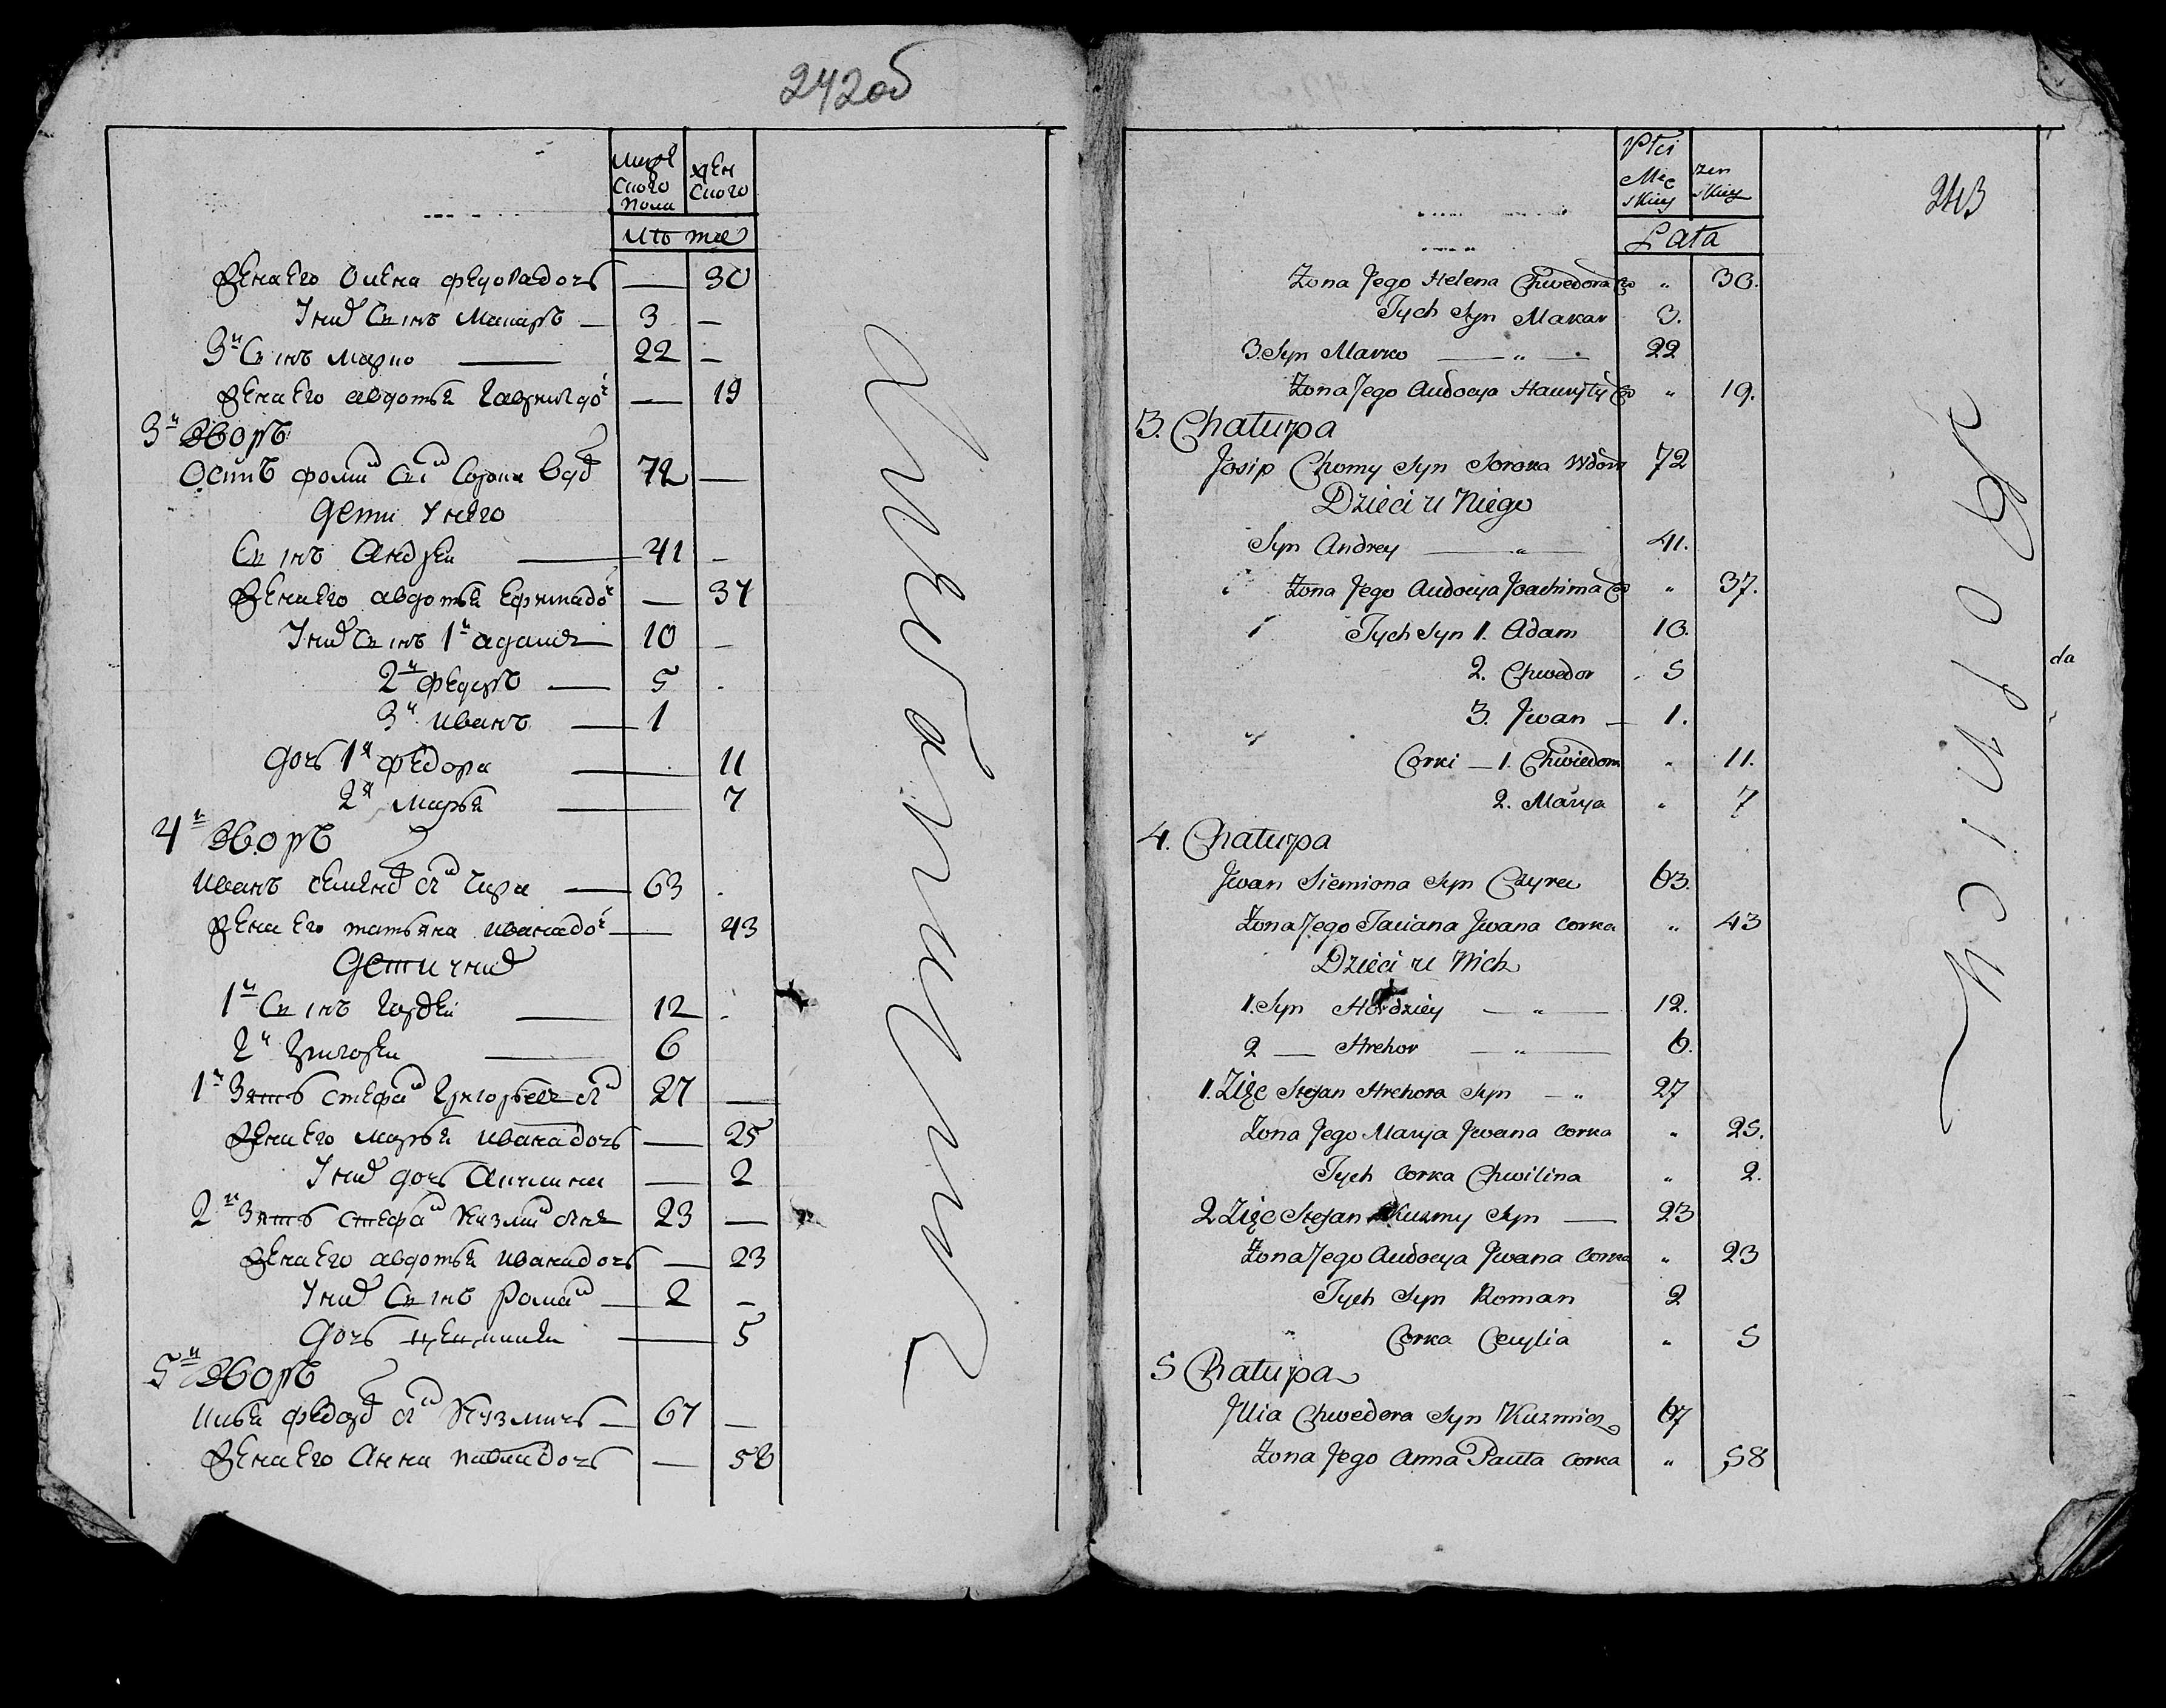 242об
Мужескаго пола
женскаго
Лѣта
Жена его Олена федорадочь — 30
У них Сынъ Макаръ — 3 —
3й Сынъ Марко — 22 —
Жена его авдотья гаврилдоч — 19
3й Дворъ
Осипъ фомин Сын Сорока вдов 72 —
Дети у него
Сынъ Андреи — 41 —
Жена его авдотья Ефимадоч — 37
У них Сынъ 1й адамъ — 10 —
2й федоръ — 5
3й иванъ — 1
дочь 1я федора — 11
2я Марья — 7
4й Дворъ
Иванъ семенов сын — 63
Жена его татьяна иванадоч — 43
Дети у них
1й Сынъ гордеи — 12
2й григореи — 6
1й Зять стефан григорьев сын 27 —
Жена его марья иванадочь — 25
У них дочь — 2
2й Зять стефан кузмин сынъ 23 —
Жена его авдотья иванадочь — 23
У них Сынъ Роман — 2 —
Дочь — 5
5й Дворъ
Илья федоров сын Кузмичь — 67 —
Жена его Анна павладочь — 58
243
Płci Męskiey
żenskiey
Lata
Żona Jego Helena Chwedora Co " 30.
Tych Syn Makar 3.
3. Syn Marko — " — 22
Żona Jego Audocya Hawryły Co " 19.
3. Chałupa
Josip Chomy Syn Soroka Wdow 72
Dzieci u Niego
Syn Andrey — " — 41.
Żona Jego Audocya Joachima Co " 37.
Tych Syn 1. Adam 10.
2. Chwedor 5
3. Jwan — 1.
Corki — 1. Chwiedora " 11.
2. Marya " 7
4. Chałupa
Jwan Siemiona Syn Czyra 63.
Żona Jego Taciana Jwana Corka " 43
Dzieci u Nich
1. Syn Hordziey — " — 12.
2 — Hrehor — " — 6.
1. Zięc Stefan Hrehora Syn — " 27
Żona Jego Marya Jwana Corka " 25.
Tych Corka Chwilina " 2.
2 Zięc Stefan Kuzmy Syn — 23
Żona Jego Audocya Jwana Corka " 23
Tych Syn Roman 2
" Corka Cecylia " 5
5 Chałupa
Jllia Chwedora Syn Kuzmicz 67
Żona Jego Anna Pauła Corka " 58
da